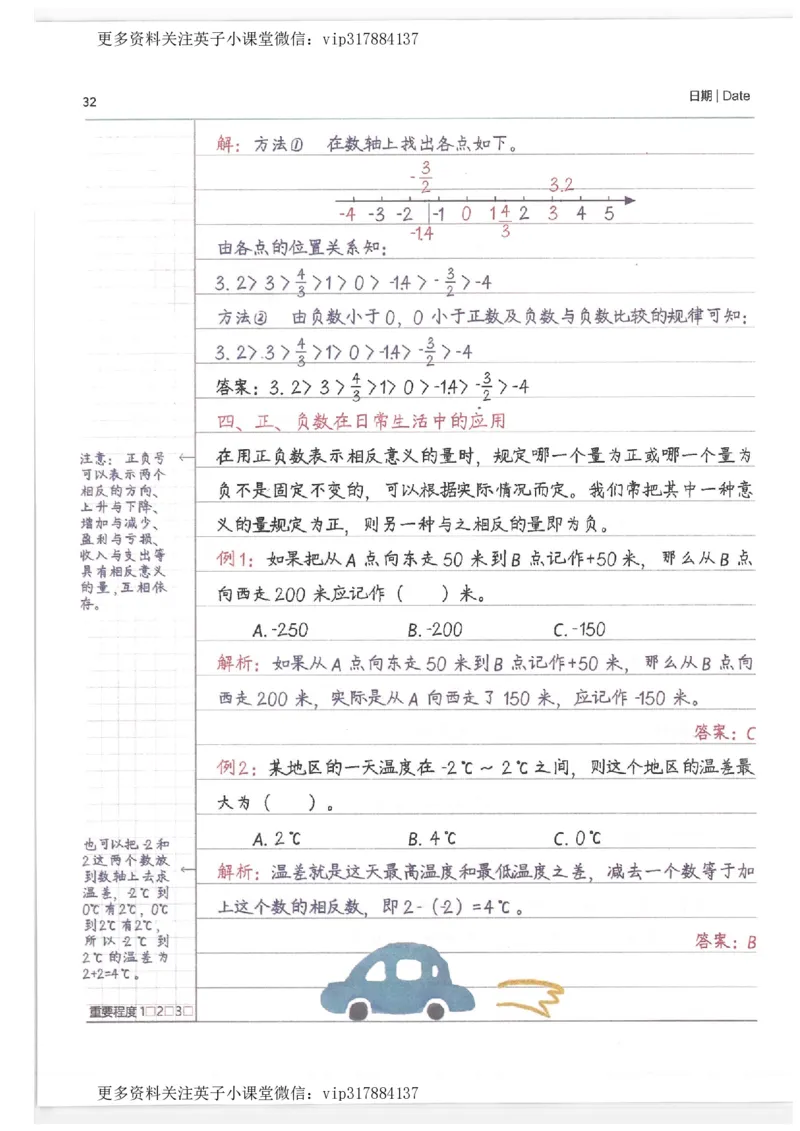 更多资料关注英子小课堂微信：vip317884137
32
日期 | Date
解：方法① 在数轴上找出各点如下。
-3/2 3.2
-4 -3 -2 -1 0 1 4/3 2 3 4 5
-1.4
由各点的位置关系知：
3.2>3>4/3>1>0>-1.4>-3/2>-4
方法② 由负数小于0，0小于正数及负数与负数比较的规律可知：
3.2>3>4/3>1>0>-1.4>-3/2>-4
答案：3.2>3>4/3>1>0>-1.4>-3/2>-4
四、正、负数在日常生活中的应用
在用正负数表示相反意义的量时，规定哪一个量为正或哪一个量为
负不是固定不变的，可以根据实际情况而定。我们常把其中一种意
义的量规定为正，则另一种与之相反的量即为负。
注意：正负号
可以表示两个
相反的方向、
上升与下降、
增加与减少、
盈利与亏损、
收入与支出等
具有相反意义
的量，互相依
存。
例1：如果把从A点向东走50米到B点记作+50米，那么从B点
向西走200米应记作（ ）米。
A.-250 B.-200 C.-150
解析：如果从A点向东走50米到B点记作+50米，那么从B点向
西走200米，实际是从A向西走了150米，应记作-150米。
答案：C
例2：某地区的一天温度在-2℃～2℃之间，则这个地区的温差最
大为（ ）。
A.2℃ B.4℃ C.0℃
解析：温差就是这天最高温度和最低温度之差，减去一个数等于加
上这个数的相反数，即2-（-2）=4℃。
答案：B
也可以把-2和
2这两个数放
到数轴上去求
温差，-2℃到
0℃有2℃，0℃
到2℃有2℃，
所以-2℃到
2℃的温差为
2+2=4℃。
重要程度 1□2□3□
更多资料关注英子小课堂微信：vip317884137